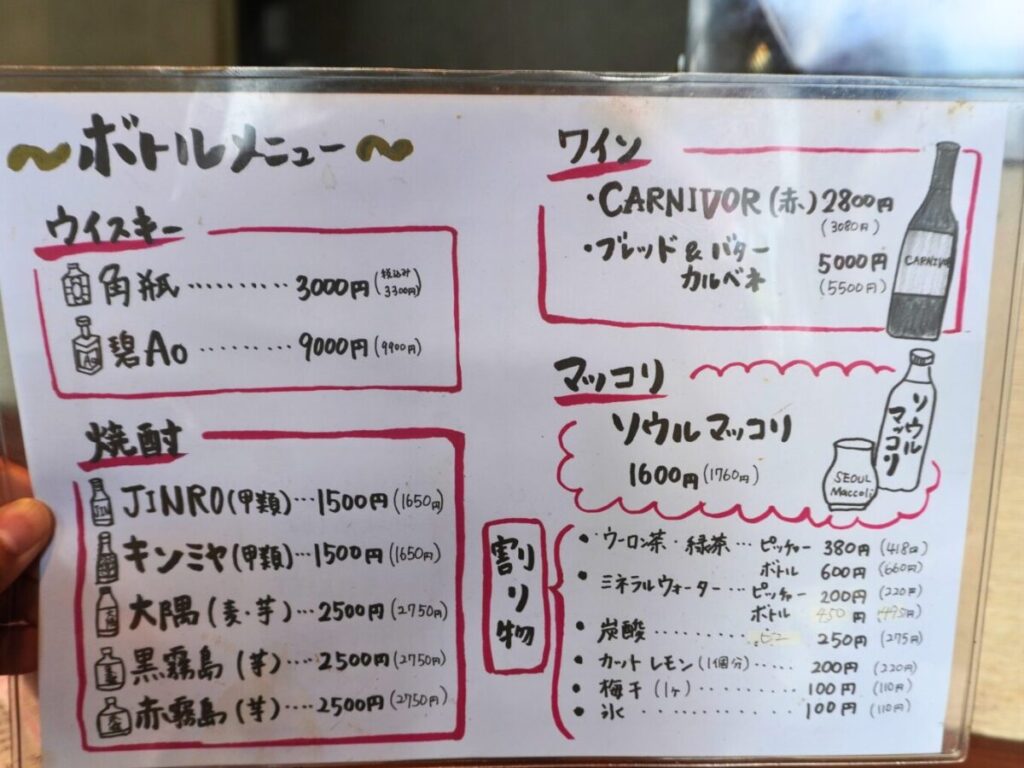 ～ボトルメニュー～
ウイスキー
角瓶………3000円(税込み3300円)
碧Ao………9000円(9900円)
焼酎
JINRO(甲類)…1500円(1650円)
キンミヤ(甲類)…1500円(1650円)
大隅(麦・芋)…2500円(2750円)
黒霧島(芋)…2500円(2750円)
赤霧島(芋)…2500円(2750円)
ワイン
・CARNIVOR(赤)2800円
(3080円)
・ブレッド&バター
カルベネ 5000円
(5500円)
CARNIVO
マッコリ
ソウルマッコリ
1600円(1760円)
ソウル
マッコリ
SEOUL
Maccoli
割り物
・ウーロン茶・緑茶…ピッチャー 380円(418円)
ボトル 600円(660円)
・ミネラルウォーター…ピッチャー 200円(220円)
ボトル 450円(495円)
・炭酸……… 250円(275円)
・カットレモン(1個分)…… 200円(220円)
・梅干(1ヶ)……… 100円(110円)
・氷……… 100円(110円)